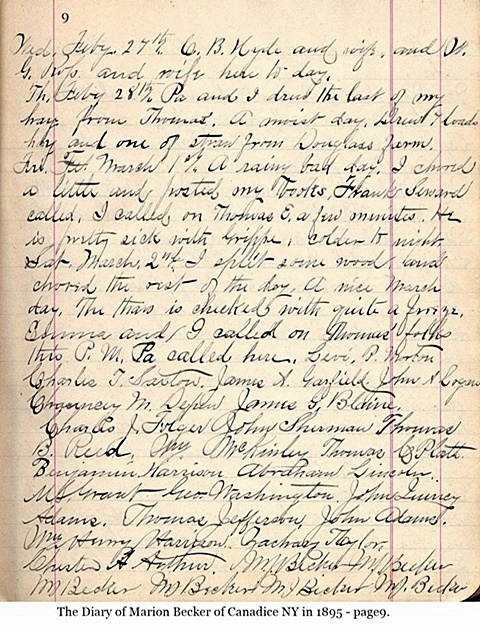 9
Wed. Feby. 27th C. B. Hyde and wife, and W.
G. Ross and wife here to day.
Th. Feby 28th Pa and I drew the last of my
hay from Thomas'. A moist day, Drew 7 loads
hay and one of straw from Douglass farm.
Fri. Feb March 1st. A rainy bad day. I chored
a little and posted my books, Frank Seward
called, I called on Thomas E. a few minutes. He
is pretty sick with Grippe, colder to night
Sat. March, 2nd. I split some wood, and
chored the rest of the day. A nice March
day. The thaw is checked with quite a freeze.
Emma and I called on Thomas folks
this P. M. Pa called here. Levi, P. Morton
Charles T. Saxton, James A. Garfield, John A Logan
Chauncey M. Depew James G. Blaine,
Charles J. Folger John Sherman Thomas
B. Reed, Wm McKinley Thomas C Platt
Benjamin Harrison Abraham Lincoln.
Grant Geo. Washington. John Quincy
Adams. Thomas Jefferson, John Adams.
Wm Henry Harrison. Zachary Taylor,
Chester A Arthur. M J Becker M J Becker
M J Becker M J Becker M J Becker M J. Becker
The Diary of Marion Becker of Canadice NY in 1895 - page9.